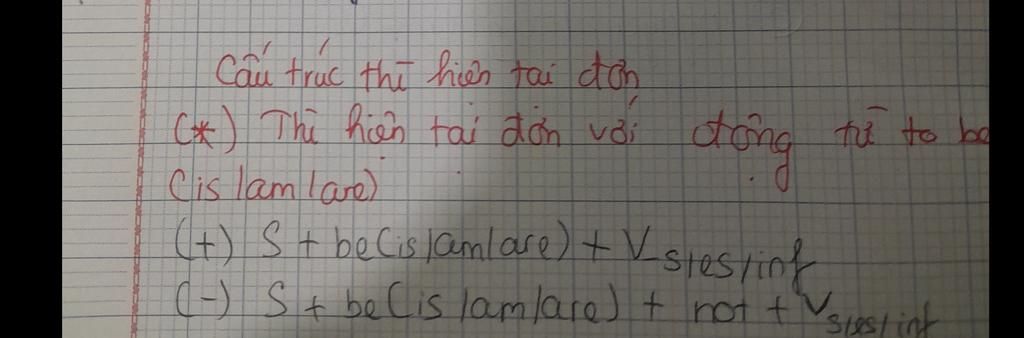 Cấu trúc thì hiện tại đơn
(*) Thì hiện tại đơn với động từ to be
(is/am/are)
(+) S + be(is/am/are) + V s/es/inf
(-) S + be(is/am/are) + not + V s/es/inf